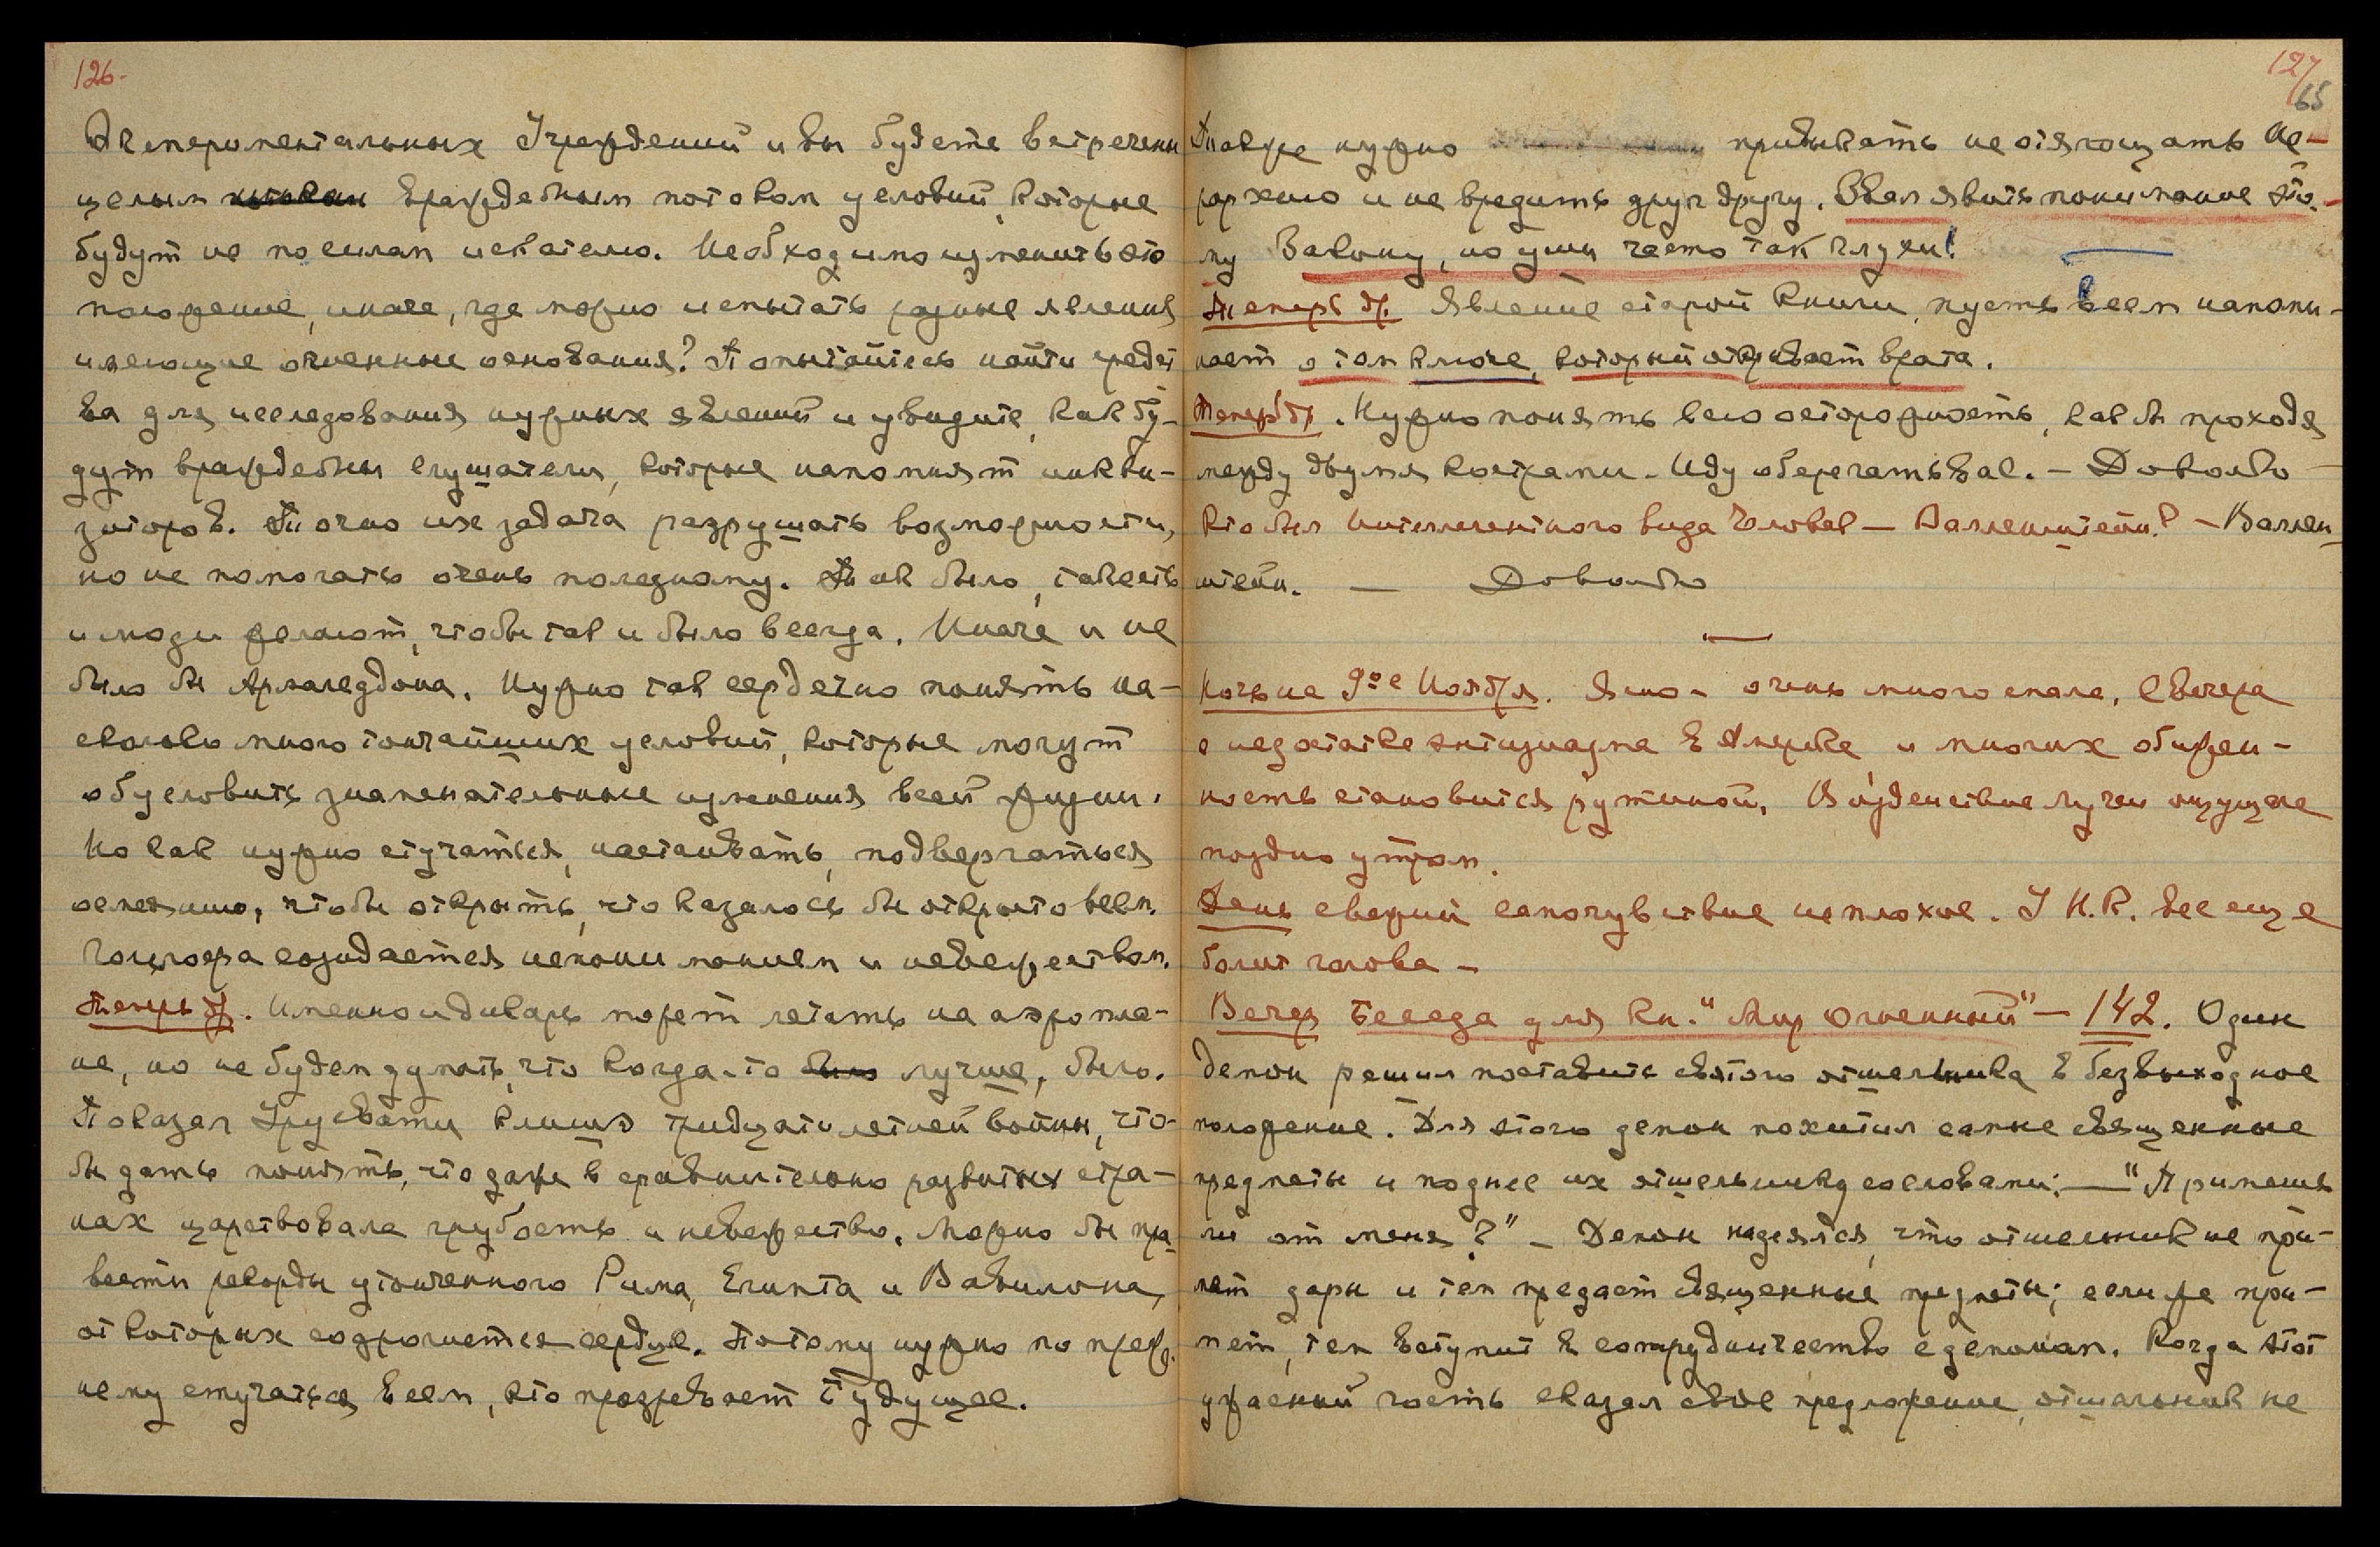 126.
Экспериментальных Учреждений и вы будете встречены
целым потоком враждебным потоком условий, которые
будут не по силам искателю. Необходимо изменить это
положение, иначе, где можно испытать разные явления
имеющие огненные основания? Попытайтесь найти средст
ва для исследования нужных явлений и увидите, как бу-
дут враждебны слушатели, которые напомнят инкви-
зиторов. Точно их задача разрушать возможности,
но не помогать очень полезному. Так было, так есть
и люди желают, чтобы так и было всегда. Иначе и не
было бы Армагеддона. Нужно так сердечно понять на-
сколько много тончайших условий, которые могут
обусловить знаменательные изменения всей жизни.
Но как нужно стучаться, настаивать, подвергаться
осмеянию, чтобы открыть, что казалось бы открыто всем.
Голгофа создается непониманием и невежеством.
Теперь др. Именно и дикарь может летать на аэропла-
не, но не будем думать, что когда-то было лучше, было.
Показал Урусвати клише тридцатилетней войны, что-
бы дать понять, что даже в сравнительно развитых стра-
нах царствовала грубость и невежество. Можно бы при-
вести рекорды утонченного Рима, Египта и Вавилона,
от которых содрогнется сердце. Потому нужно по преж-
нему стучаться всем, кто прозревает Будущее.
127
65
Также нужно привыкать не отягощать Ие-
рархию и не вредить друг другу. Звал явить понимание это-
му Закону, но уши часто так глухи!
Теперь др. Явление старой книги, пусть всем напоми-
нает о том ключе, который открывает врата.
Теперь др. Нужно понять всю осторожность, как бы проходя
между двумя кострами. Иду оберегать вас. — Довольно —
Кто был интеллигентного вида человек — Валленштейн? — Вален-
штейн. — Довольно
—
Ночь на 9ое Ноября. Ясно - очень много спала. С вечера
о недостатке энтузиазма в Америке и многих обыден-
ность становится рутиной. Воздействие лучей ощущала
поздно утром.
День свежий самочувствие неплохое. У Н.К. все еще
болит голова —
Вечер Беседа для кн. "Мир Огненный" — 142. Один
демон решил поставить святого отшельника в безвыходное
положение. Для этого демон похитил самые священные
предметы и поднес их отшельнику со словами: — "Примешь
ли от меня?" — Демон надеялся, что отшельник не при-
мет дары и тем предаст священные предметы; если же при-
мет, тем вступит в сотрудничество с демоном. Когда этот
ужасный гость сказал свое предложение, отшельник не